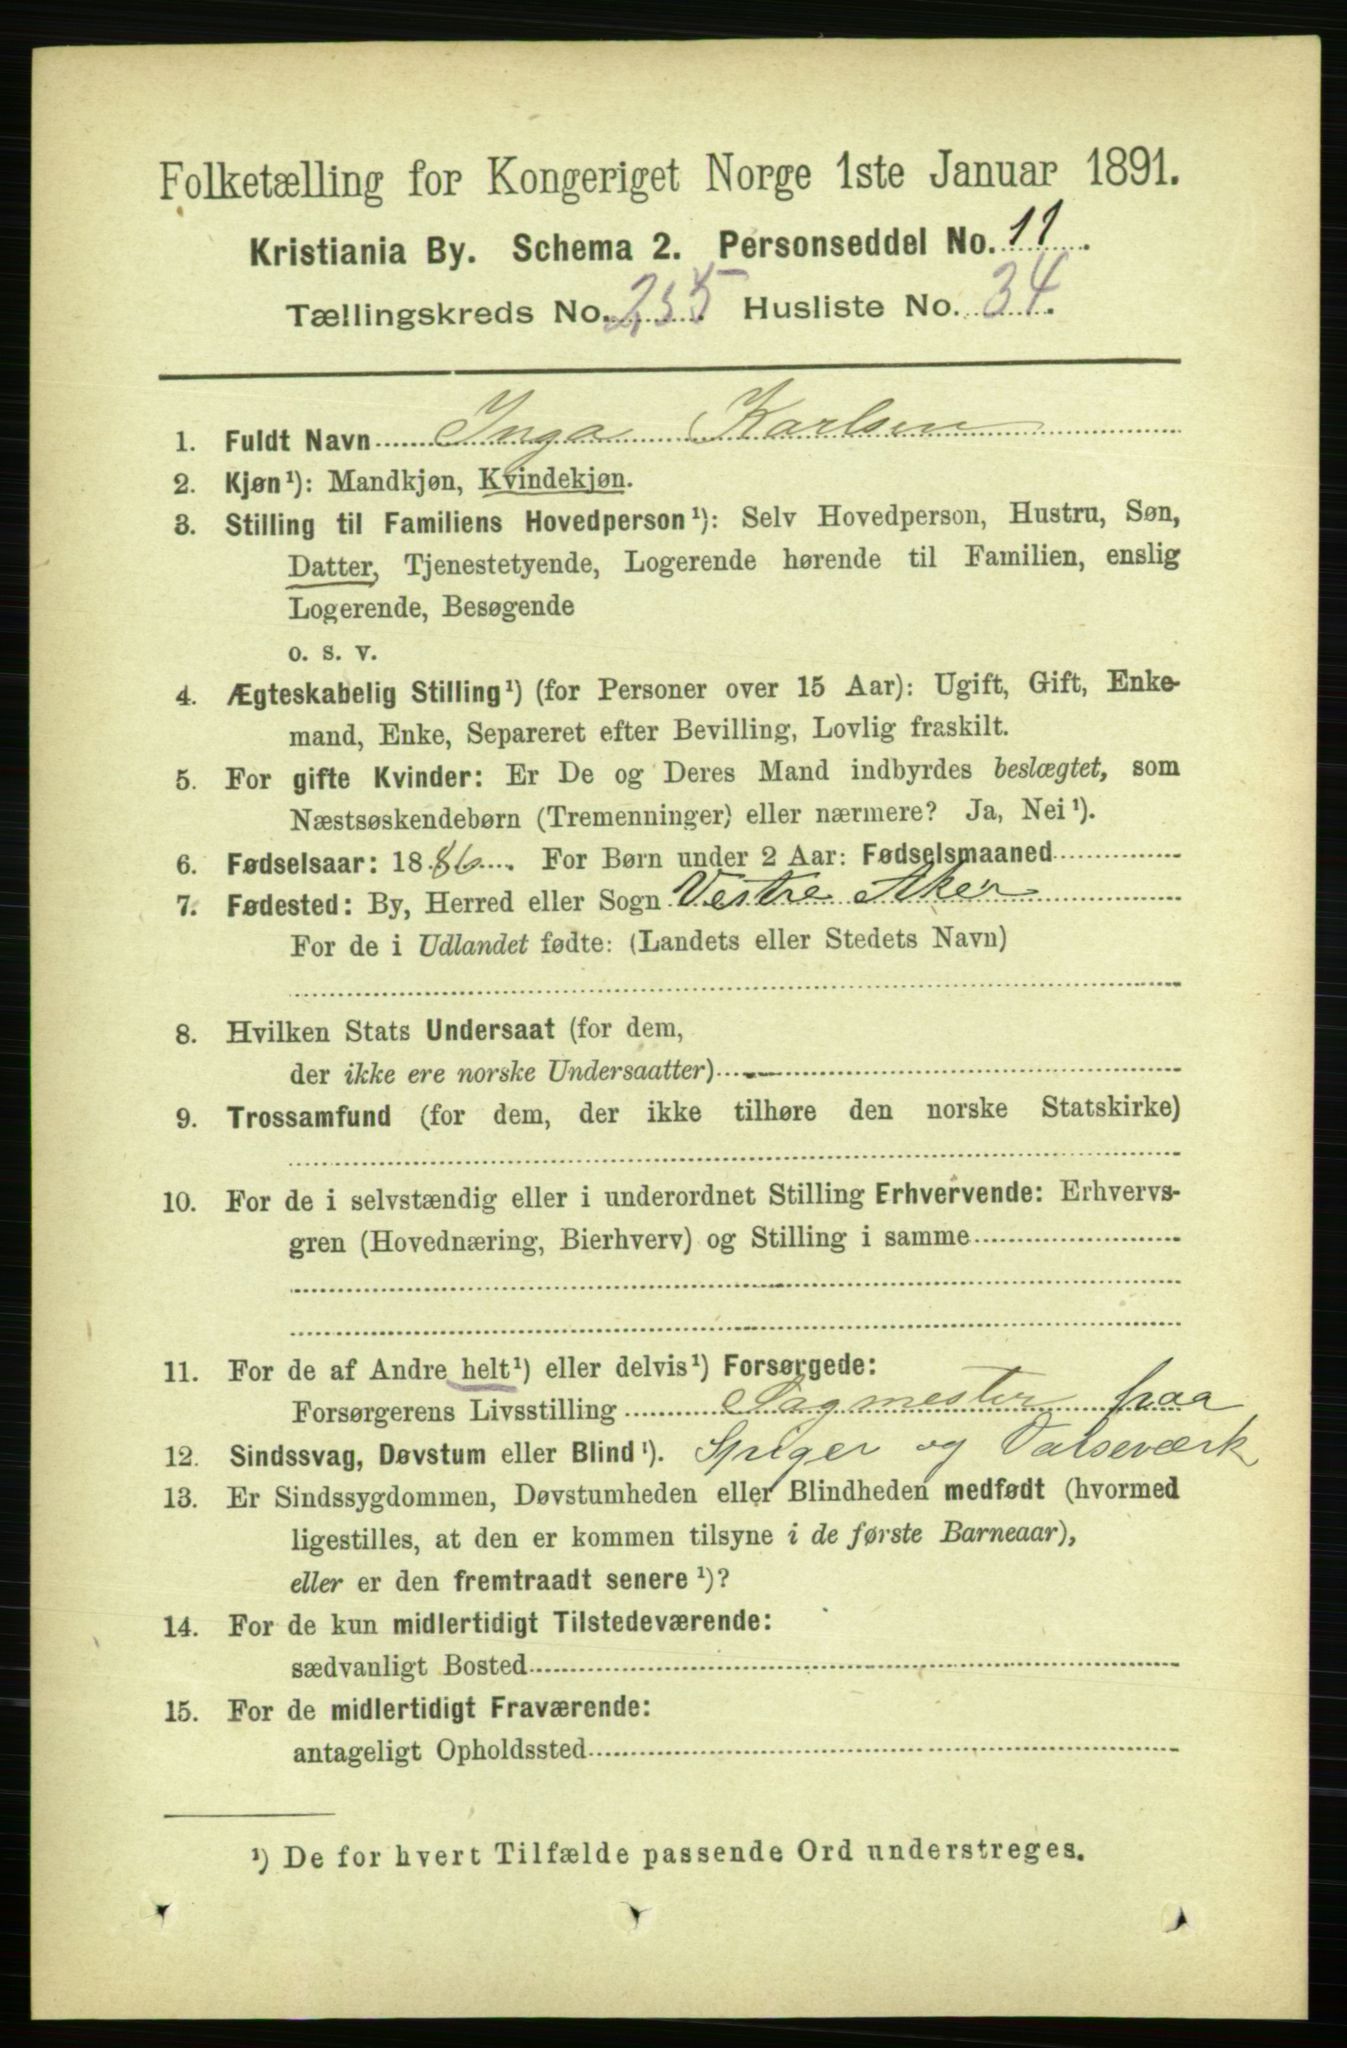 Folketælling for Kongeriget Norge 1ste Januar 1891.
Kristiania By. Schema 2. Personseddel No. 11.
Tællingskreds No. 255. Husliste No. 34.
1. Fuldt Navn Inga Karlsen
2. Kjøn¹): Mandkjøn, Kvindekjøn.
3. Stilling til Familiens Hovedperson¹): Selv Hovedperson, Hustru, Søn,
Datter, Tjenestetyende, Logerende hørende til Familien, enslig
Logerende, Besøgende
o. s. v.
4. Ægteskabelig Stilling¹) (for Personer over 15 Aar): Ugift, Gift, Enke-
mand, Enke, Separeret efter Bevilling, Lovlig fraskilt.
5. For gifte Kvinder: Er De og Deres Mand indbyrdes beslægtet, som
Næstsøskendebørn (Tremenninger) eller nærmere? Ja, Nei¹).
6. Fødselsaar: 1886. For Børn under 2 Aar: Fødselsmaaned
7. Fødested: By, Herred eller Sogn Vestre Aker
For de i Udlandet fødte: (Landets eller Stedets Navn)
8. Hvilken Stats Undersaat (for dem,
der ikke ere norske Undersaatter)
9. Trossamfund (for dem, der ikke tilhøre den norske Statskirke)
10. For de i selvstændig eller i underordnet Stilling Erhvervende: Erhvervs-
gren (Hovednæring, Bierhverv) og Stilling i samme
11. For de af Andre helt¹) eller delvis¹) Forsørgede:
Forsørgerens Livsstilling Sagmester paa
12. Sindssvag, Døvstum eller Blind¹). Spiger og Valseværk
13. Er Sindssygdommen, Døvstumheden eller Blindheden medfødt (hvormed
ligestilles, at den er kommen tilsyne i de første Barneaar),
eller er den fremtraadt senere¹)?
14. For de kun midlertidigt Tilstedeværende:
sædvanligt Bosted
15. For de midlertidigt Fraværende:
antageligt Opholdssted
¹) De for hvert Tilfælde passende Ord understreges.